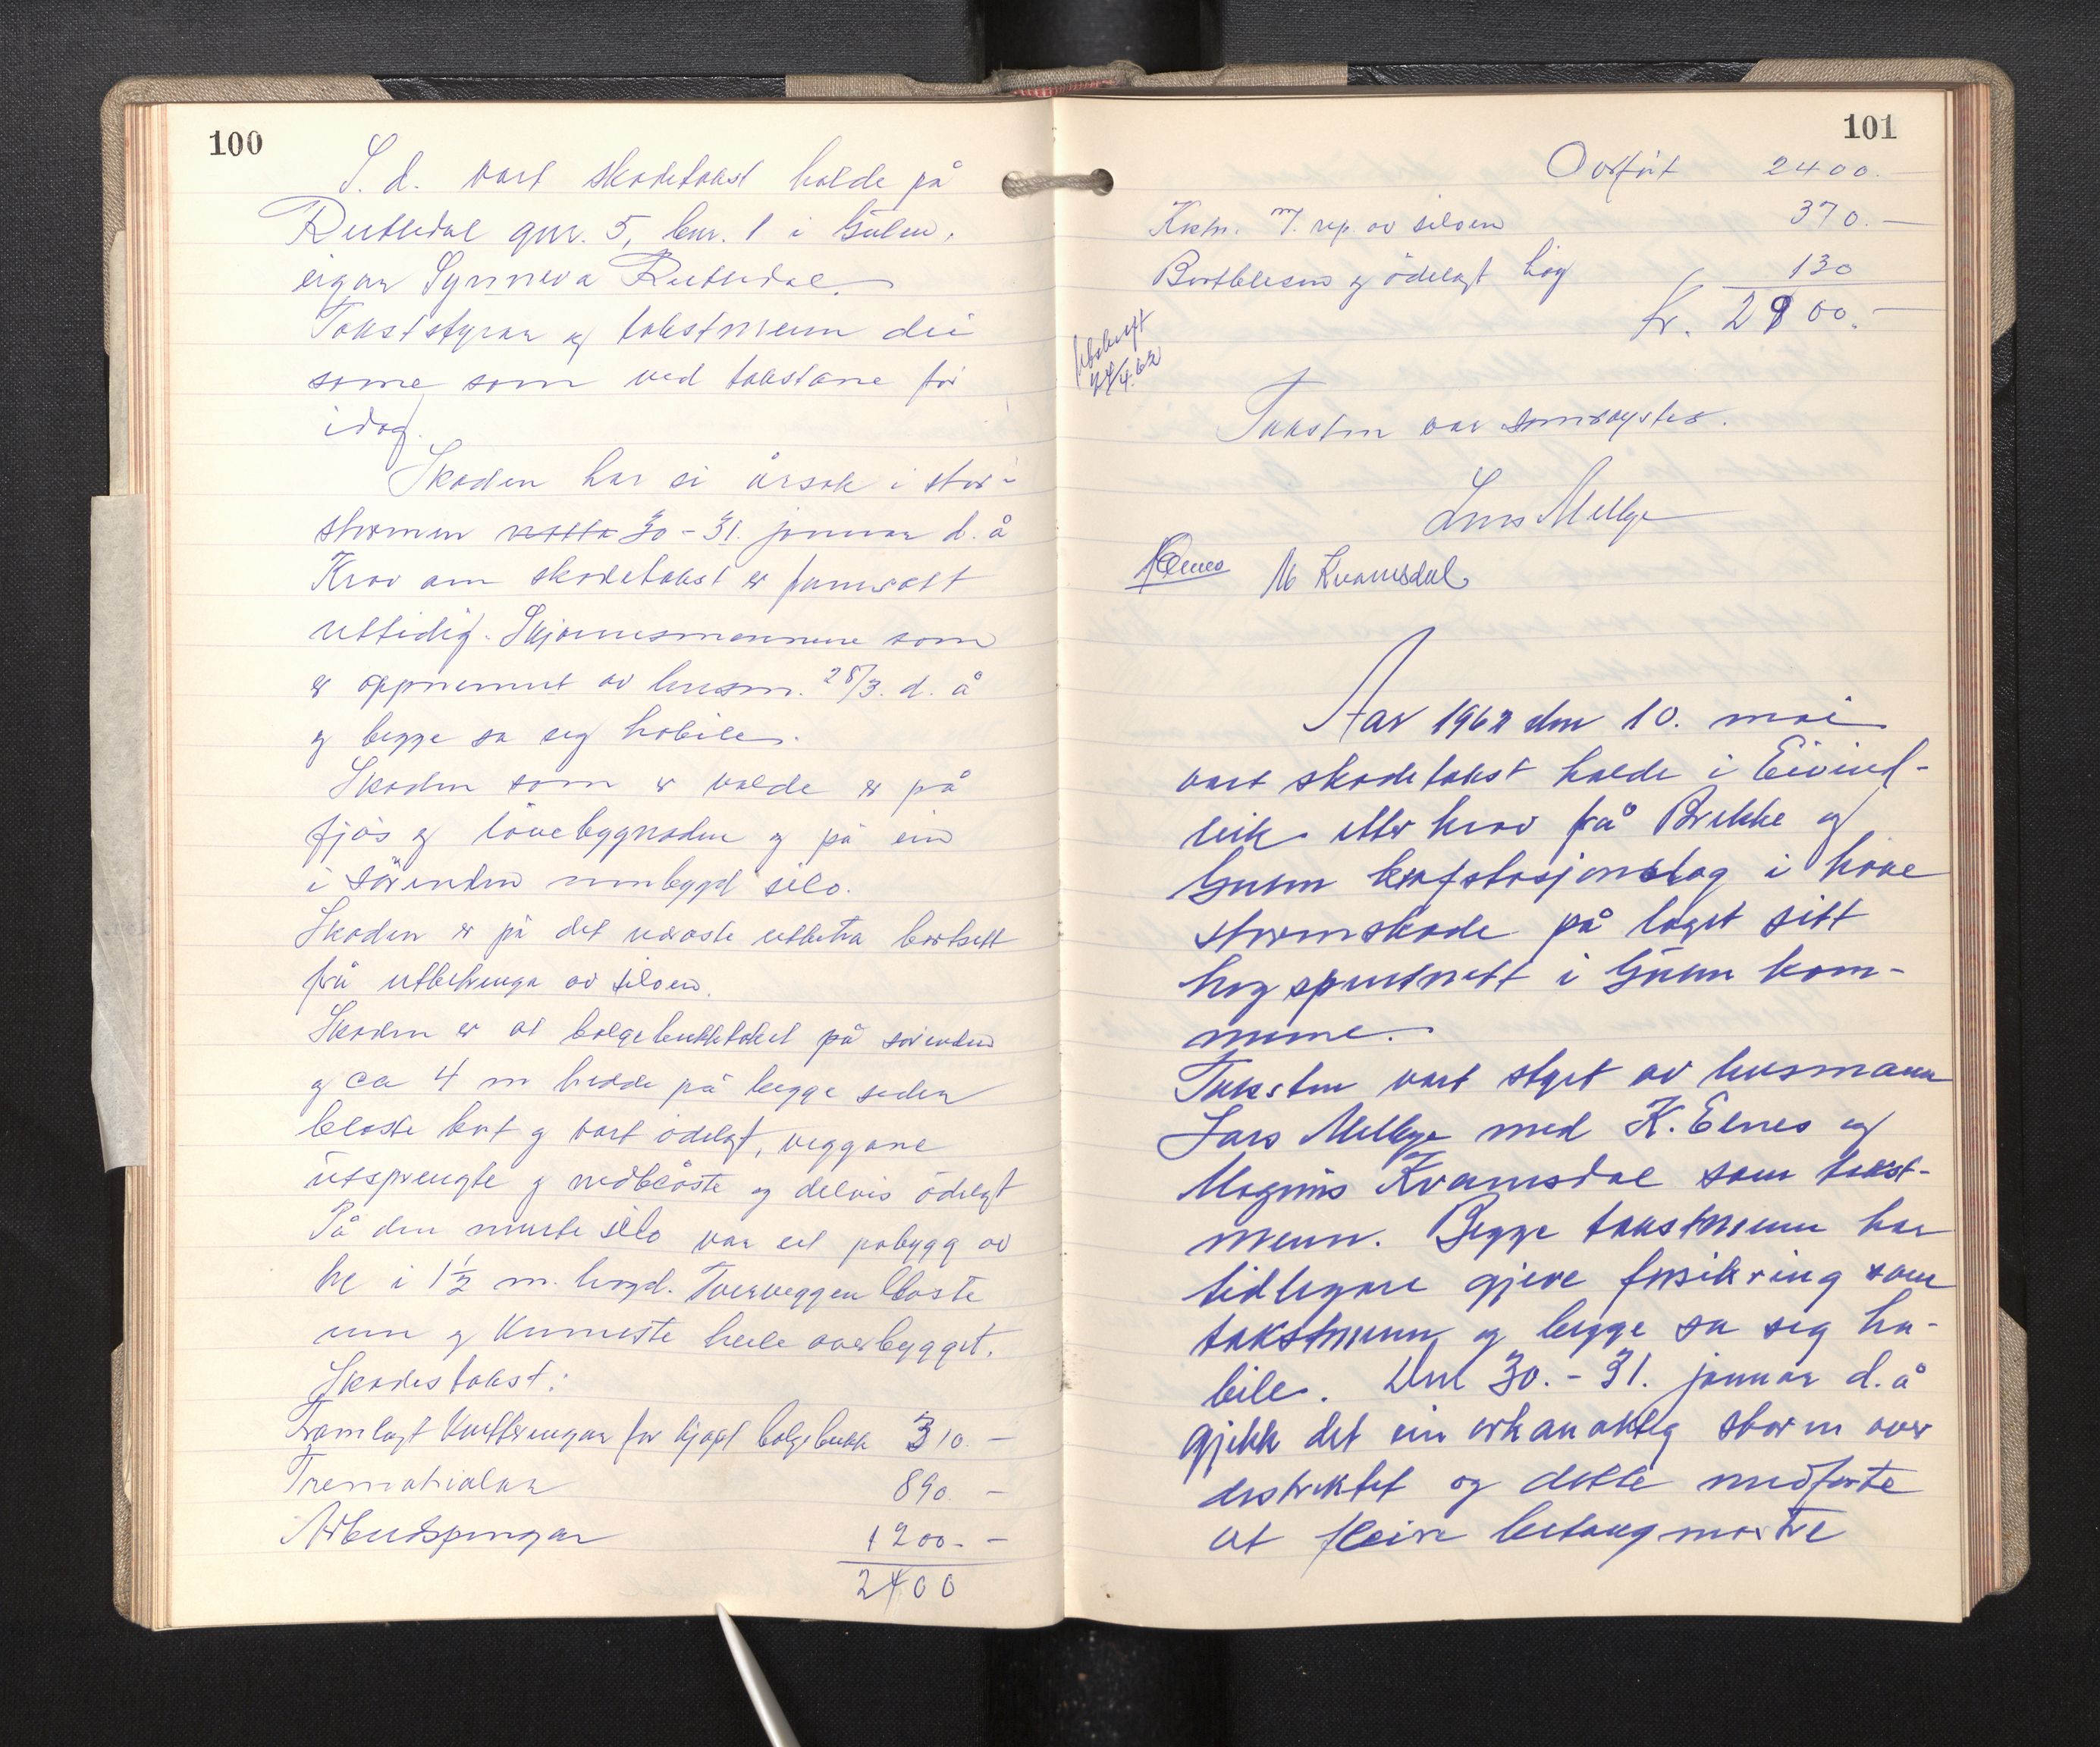 100
S. d. vart skadetakst halde på
Rutledal gnr. 5, bnr. 1 i Gulen,
eigar Synneva Rutledal.
Takststyrar og takstmenn dei
same som ved takstane før
idag.
Skaden har si årsak i stor-
stormen natta 30-31. januar d. å
Krav om skadetakst er framsatt
rettidig. Skjønnsmennene som
er oppnemnt av lensm. 28/3. d. å
og begge sa seg habile.
Skaden som er valde er på
fjøs og løebygnaden og på ein
i sørenden innbygd silo.
Skaden er på det næraste utbetra bortsett
frå utbetringa av siloen.
Skaden er at bølgeblekktaket på sørenden
og ca 4 m bredde på begge sider
blåste bort og vart ødelagt, veggane
utsprengte og nedblåste og delvis ødelagt
På den murte silo var eit påbygg av
tre i 1½ m. høgd. Tverveggen blåste
inn og knuste heile overbygget.
Skadestakst:
Framlagt kvitteringar for kjøpt bølgeblekk 310. -
Trematrialar 890. -
Arbeidspengar 1200. -
2400
101
Overført 2400. -
Kostn. m/. rep av siloen 370. -
Bortblesen og ødelagt høy 130
kr. 2900. -
24/4.62
Taksten var samrøystes.
Lars Mellbye
KEenes M Kvamsdal
Aar 1962 den 10. mai
vart skadetakst halde i Eivind-
vik etter krav frå Brekke og
Gulen kraftstasjonslag i høve
stormskade på laget sitt
høgspentnett i Gulen kom-
mune.
Taksten vart styrt av lensmann
Lars Mellbye med K. Eenes og
Magnus Kvamsdal som takst-
menn. Begge takstmenn har
tidlegare gjeve forsikring som
takstmenn og begge sa seg ha-
bile. Den 30.-31. januar d. å
gjekk det ein orkanaktig storm over
distriktet og dette medførte
at fleire betongmastre